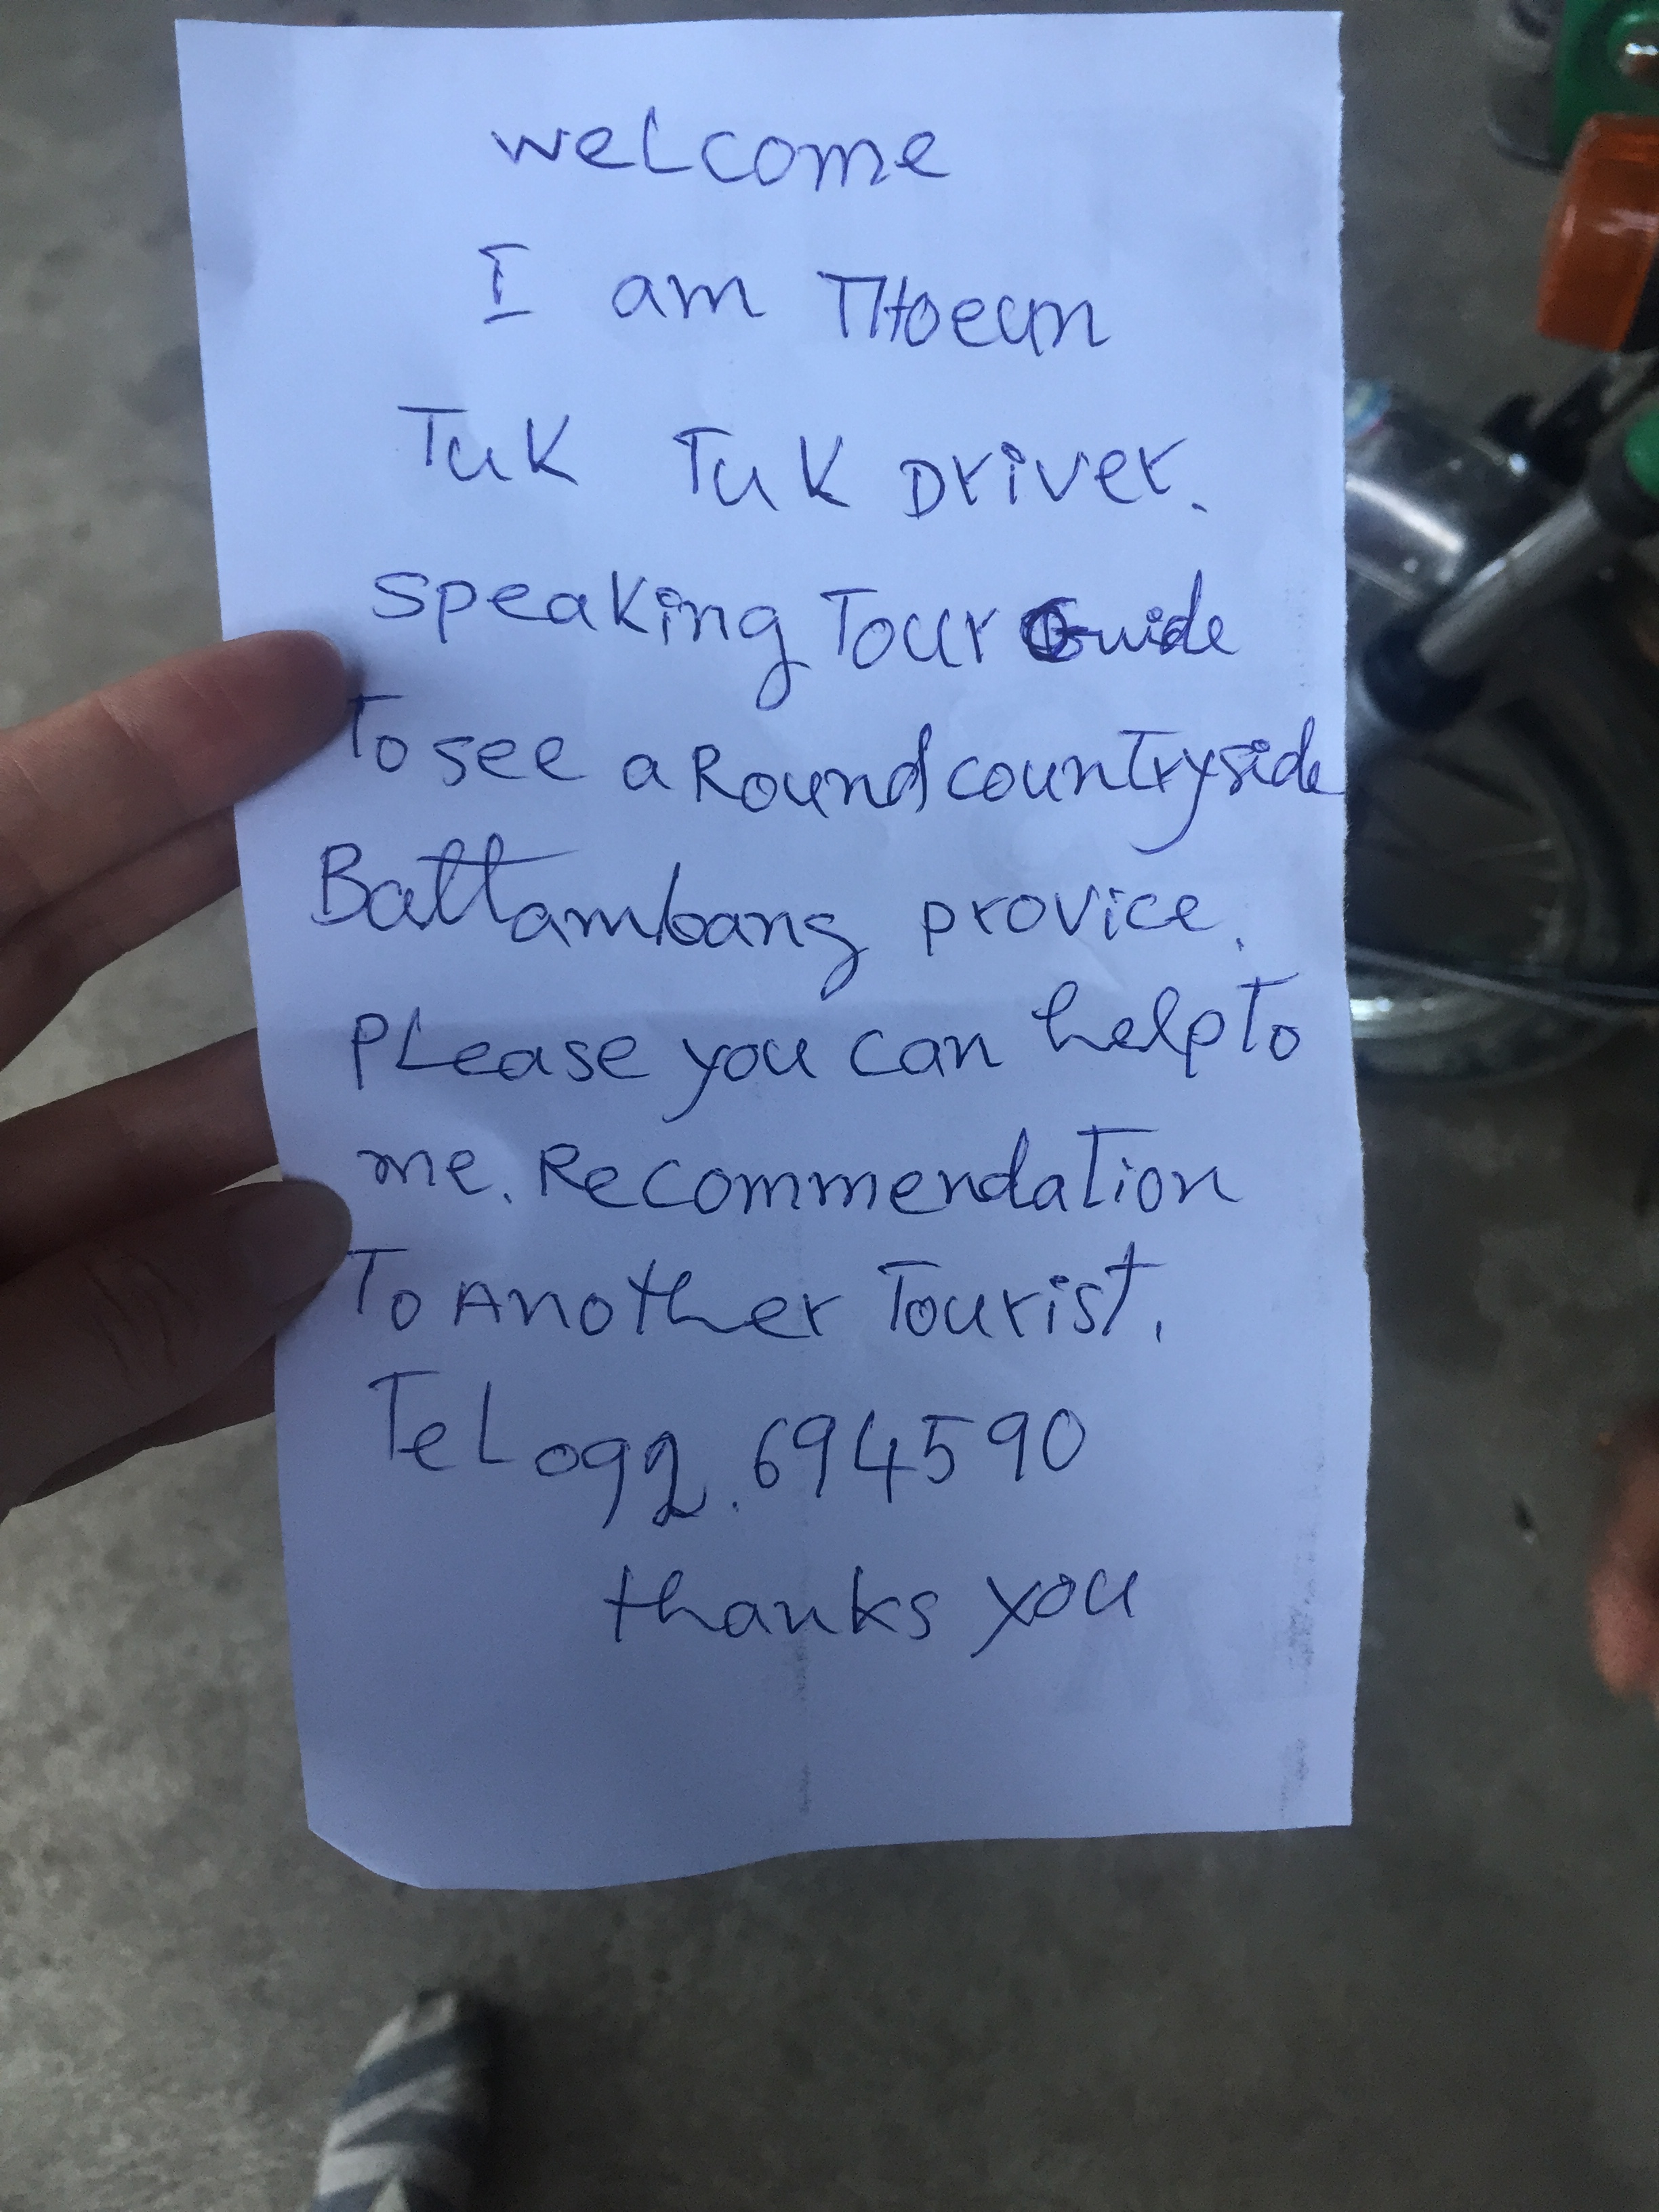 welcome
I am THoeun
Tuk Tuk Driver.
Speaking Tour Guide
To see a Round countryside
Battambang provice.
PLease you can help To
me. Recommendation
To Another Tourist.
TeL 092.694590
thanks you